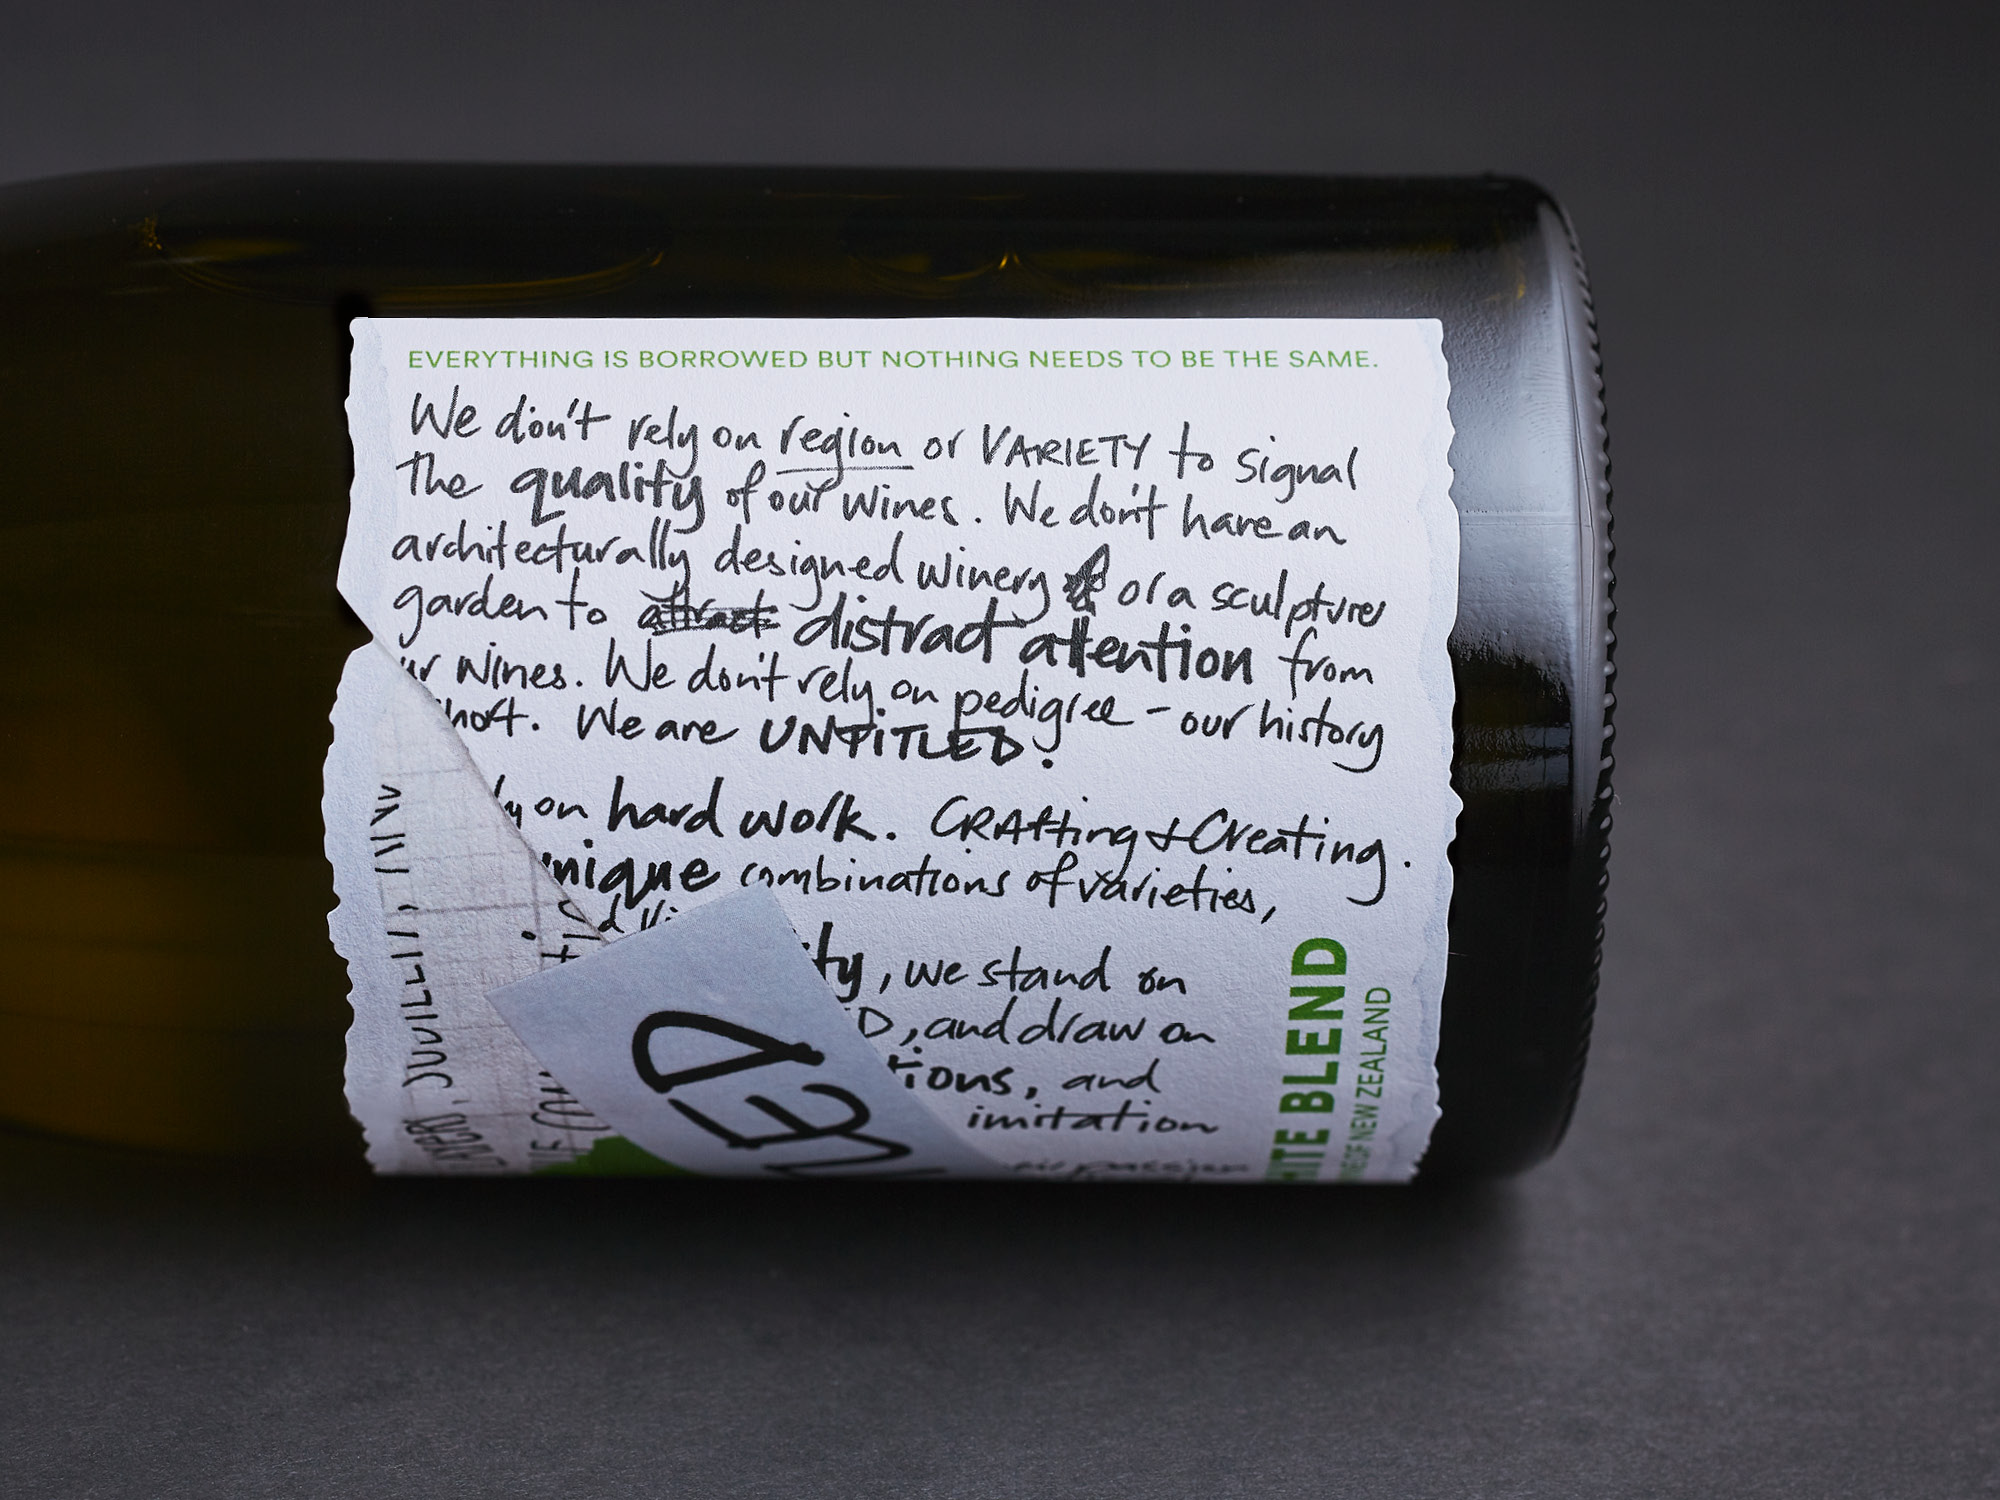 EVERYTHING IS BORROWED BUT NOTHING NEEDS TO BE THE SAME.
We don't rely on region or VARIETY to signal
the quality of our wines. We don't have an
architecturally designed winery or a sculpture
garden to attract distract attention from
ur wines. We don't rely on pedigree - our history
short. We are UNTITLED.
ly on hard work. CRAfting + Creating.
unique combinations of varieties,
ty, we stand on
D, and draw on
tions, and
imitation
WHITE BLEND
WINE OF NEW ZEALAND